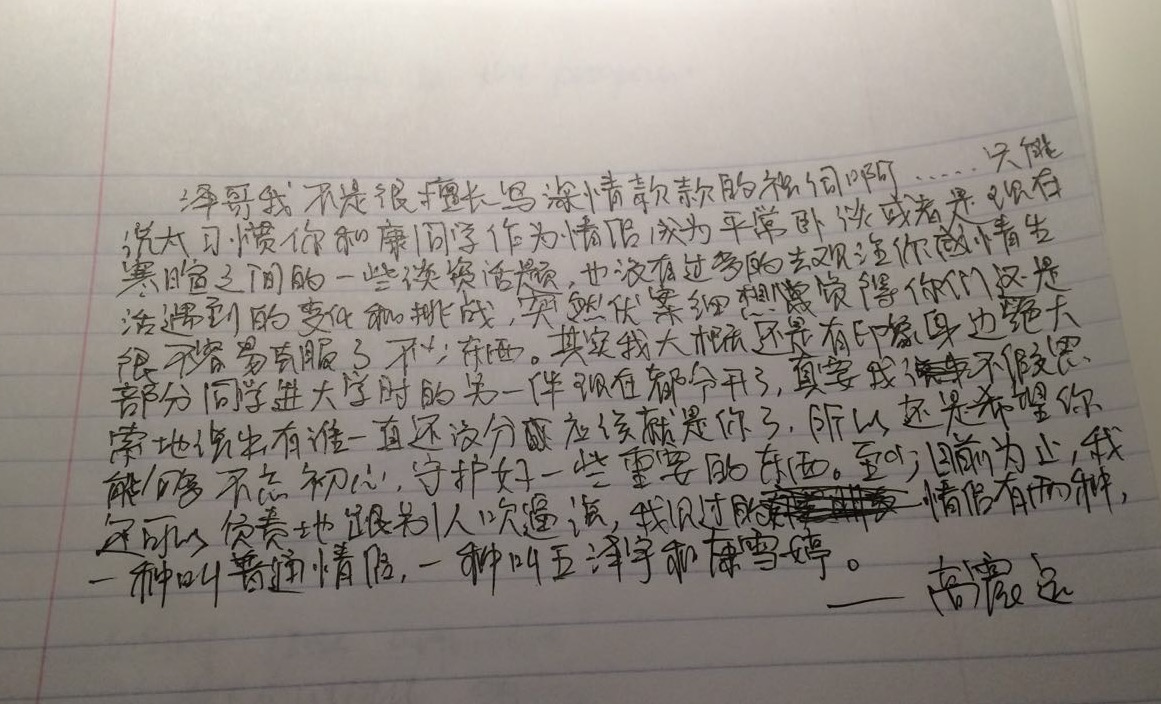 泽哥我不是很擅长写深情款款的祝词啊......只能
说太习惯你和康同学作为情侣成为平常卧谈或者是现在
寒暄之间的一些谈资话题,也没有过多的去关注你感情生
活遇到的变化和挑战,突然伏案细想觉得你们这是
很不容易克服了不少东西。其实我大概还是有印象身边绝大
部分同学进大学时的另一伴现在都分开了,真要我不假思
索地说出有谁一直还没分应该就是你了,所以还是希望你
能够不忘初心,守护好一些重要的东西。至少目前为止,我
还可以负责地跟别人吹逼说,我见过的情侣有两种,
一种叫普通情侣,一种叫王泽宇和康雪婷。
——高震远